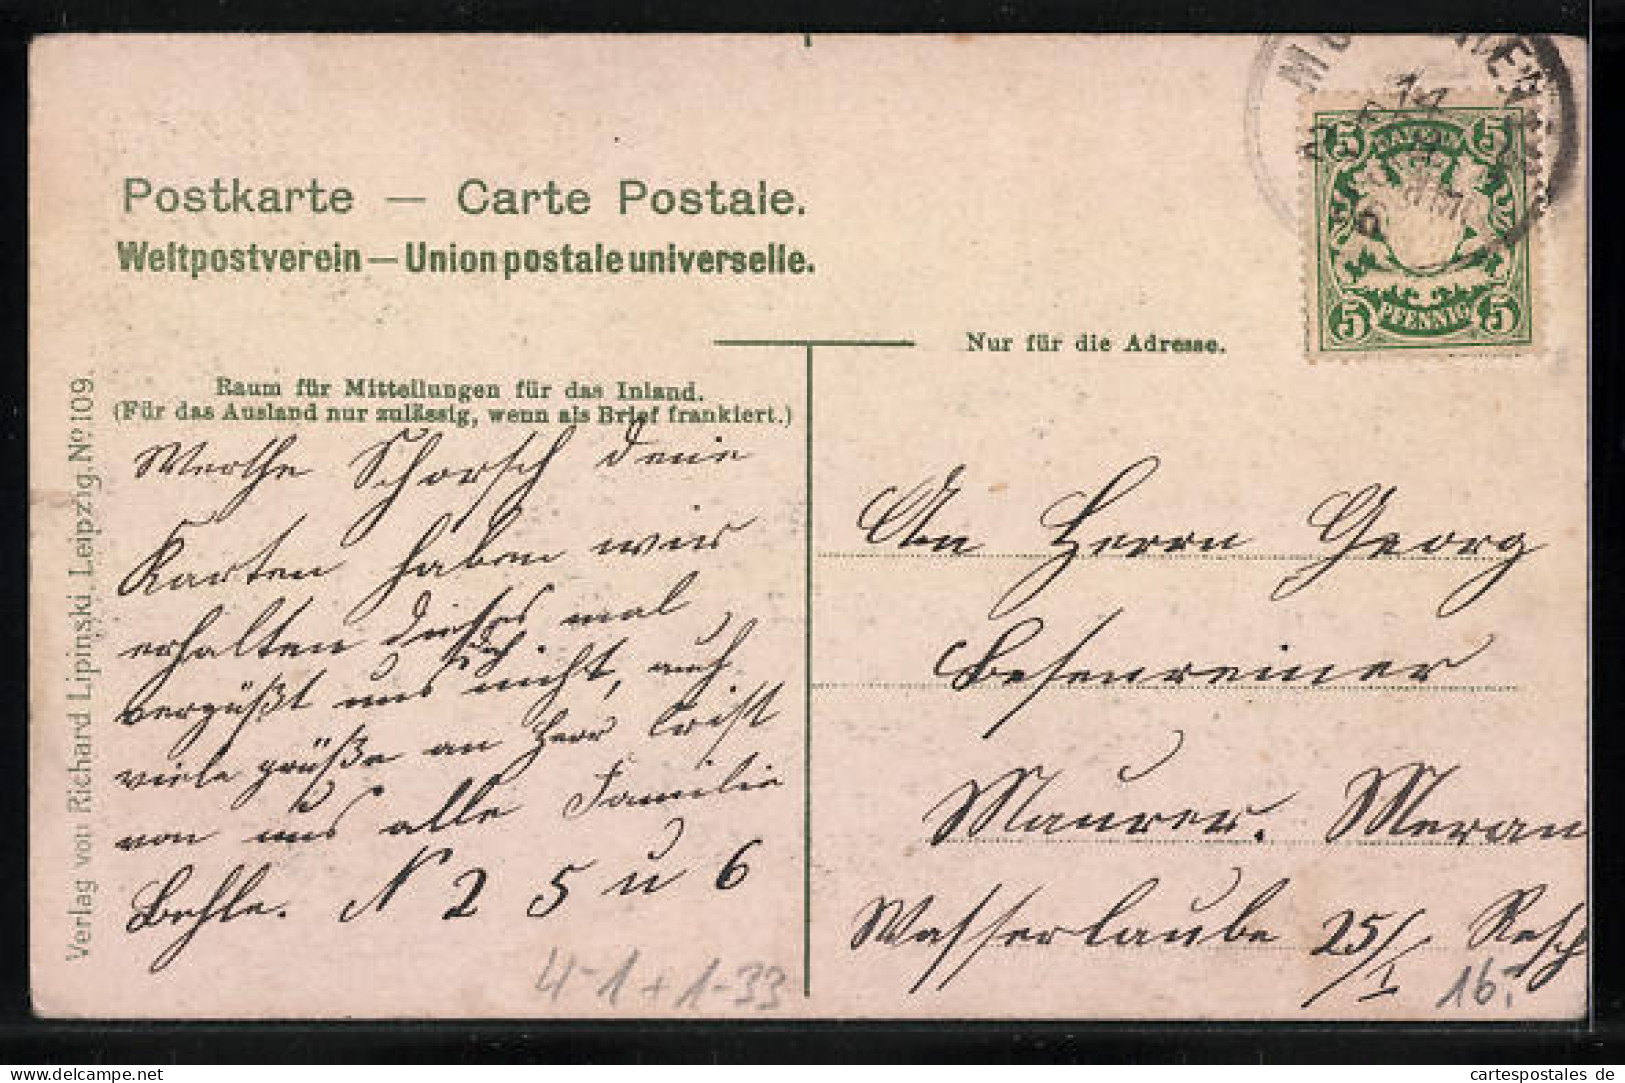 Postkarte — Carte Postale.
Weltpostverein — Union postale universelle.
Nur für die Adresse.
Raum für Mitteilungen für das Inland.
(Für das Ausland nur zulässig, wenn als Brief frankiert.)
Werthe Schorsch deine
Karten haben wir
erhalten dieses mal
vergüßt uns nicht, auch
viele grüße an Herr Crist
von uns alle Familie
Besle. N 2 5 u 6
An Herrn Georg
Besenreiner
Maurer. Meran
Wasserlaube 25/I
4-1+1-33
16.-
Verlag von Richard Lipinski, Leipzig. No 109.
5 BAYERN 5
5 PFENNIG 5
14
www.cartespostales.de
cartespostales de